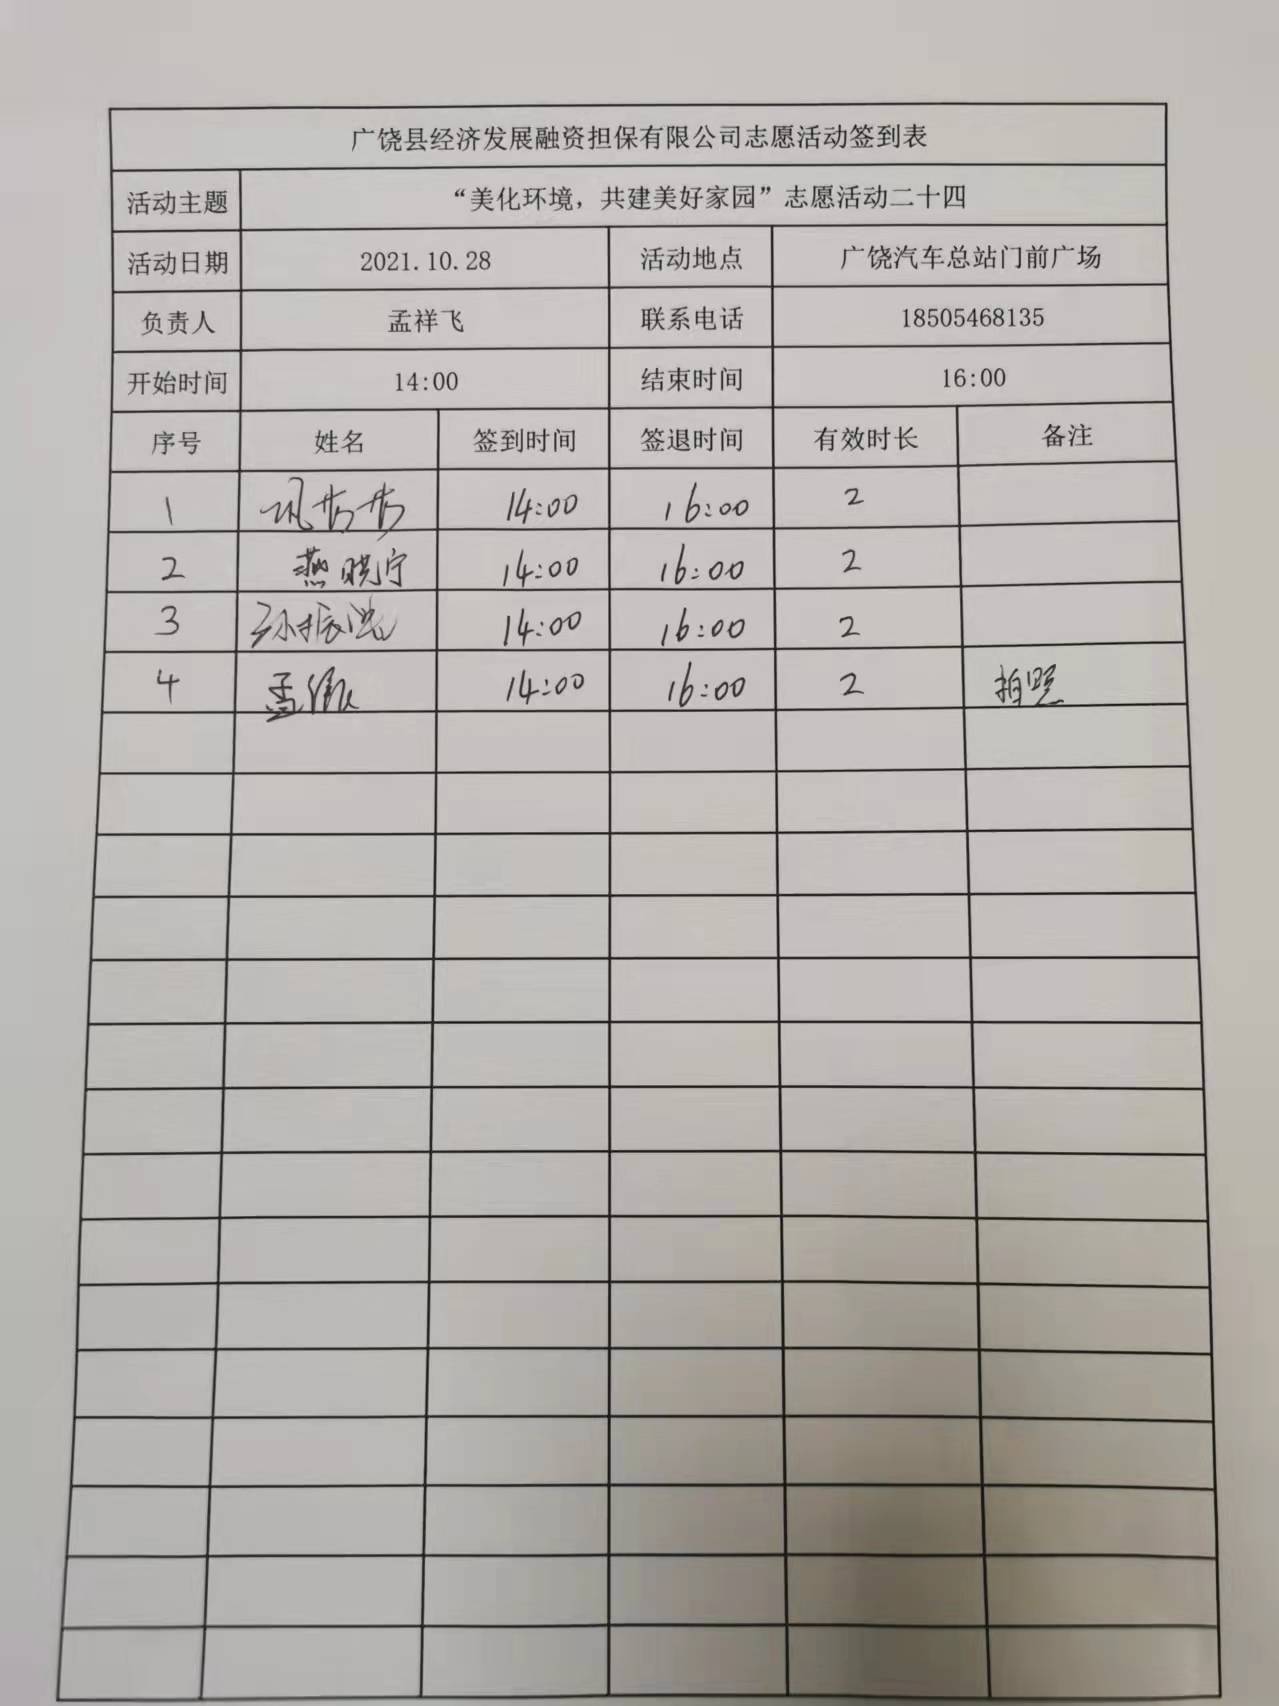 广饶县经济发展融资担保有限公司志愿活动签到表
活动主题 “美化环境，共建美好家园”志愿活动二十四
活动日期 2021.10.28 活动地点 广饶汽车总站门前广场
负责人 孟祥飞 联系电话 18505468135
开始时间 14:00 结束时间 16:00
序号 姓名 签到时间 签退时间 有效时长 备注
1 14:00 16:00 2
2 燕晓宁 14:00 16:00 2
3 孙振浩 14:00 16:00 2
4 孟 14:00 16:00 2 拍照